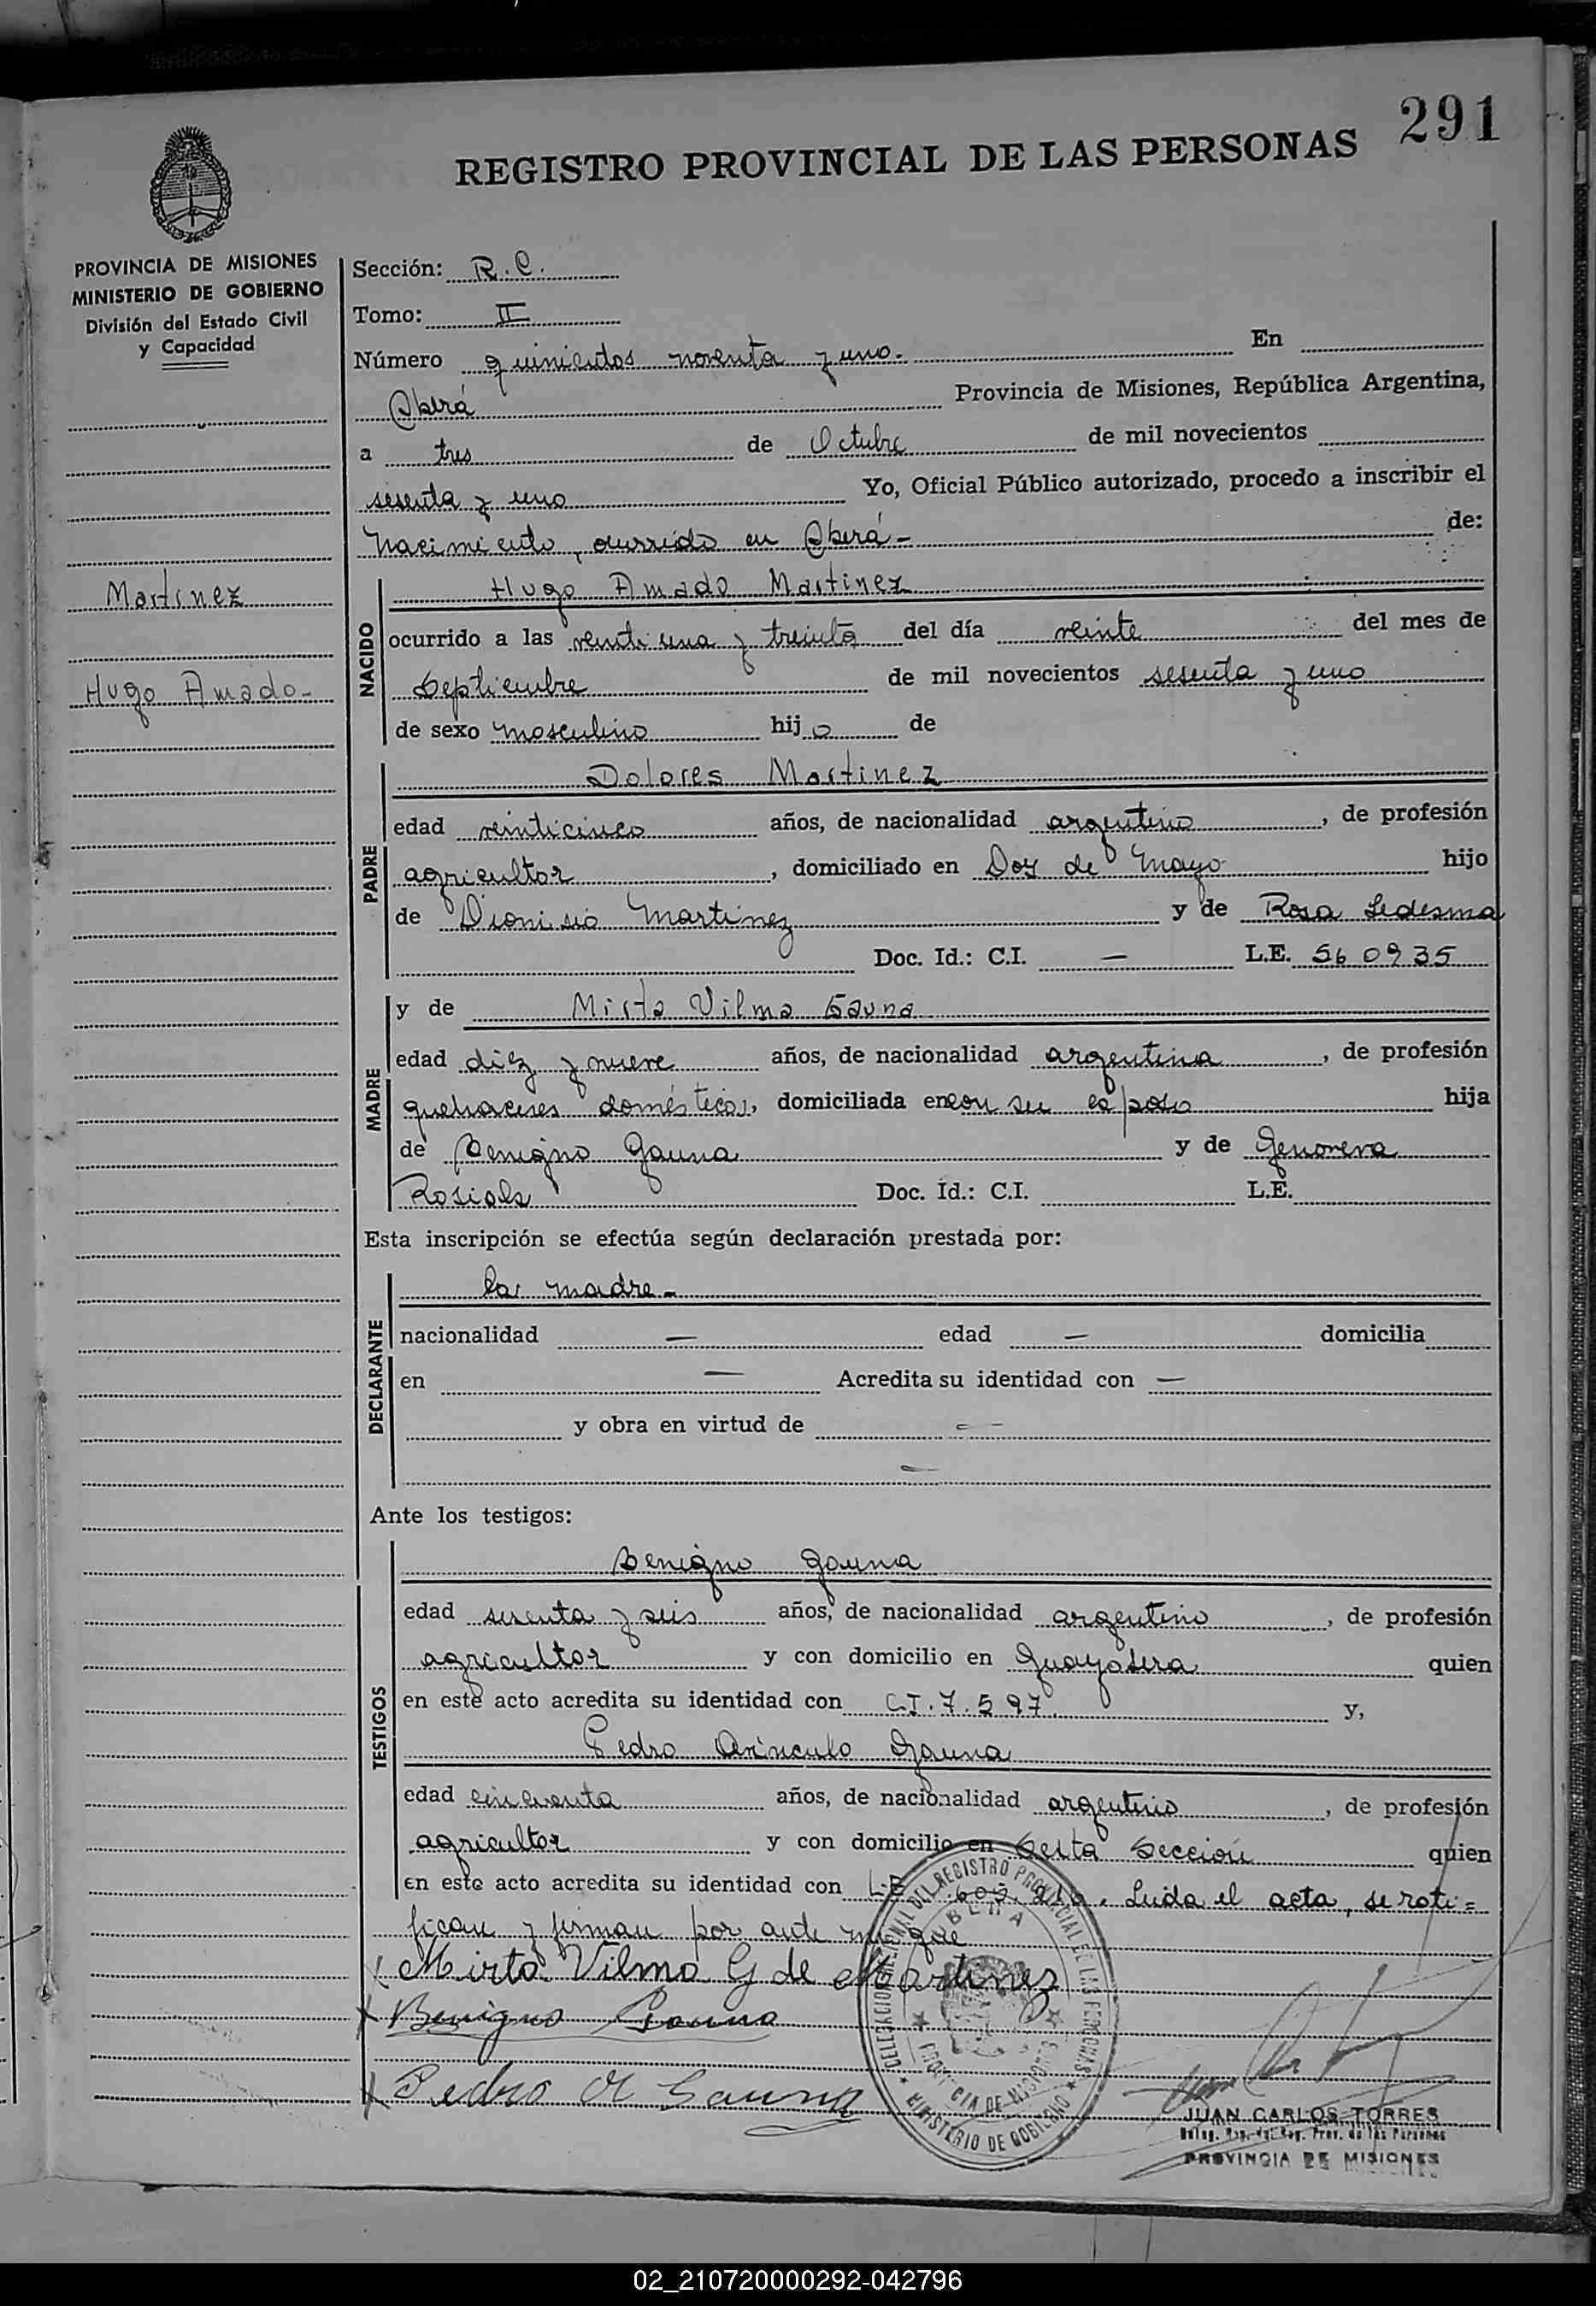 291
REGISTRO PROVINCIAL DE LAS PERSONAS
PROVINCIA DE MISIONES
MINISTERIO DE GOBIERNO
División del Estado Civil
y Capacidad
Martinez
Hugo Amado-
Sección: R.C.
Tomo: II
Número quinientos noventa y uno.- En
Oberá Provincia de Misiones, República Argentina,
a tres de Octubre de mil novecientos
sesenta y uno Yo, Oficial Público autorizado, procedo a inscribir el
Nacimiento, ocurrido en Oberá - de:
NACIDO
Hugo Amado Martinez
ocurrido a las veinti una y treinta del día veinte del mes de
Septiembre de mil novecientos sesenta y uno
de sexo masculino hijo de
PADRE
Dolores Martinez
edad veinticinco años, de nacionalidad argentino, de profesión
agricultor, domiciliado en Dos de Mayo hijo
de Dionisio Martinez y de Rosa Ledesma
Doc. Id.: C.I. — L.E. 560935
MADRE
y de Mirta Vilma Gauna
edad diez y nueve años, de nacionalidad argentina, de profesión
quehaceres domésticos, domiciliada en con su esposo hija
de Benigno Gauna y de Genoveva
Doc. Id.: C.I. L.E.
Esta inscripción se efectúa según declaración prestada por:
DECLARANTE
la madre -
nacionalidad — edad — domicilia
en — Acredita su identidad con —
y obra en virtud de —
—
Ante los testigos:
TESTIGOS
Benigno Gauna
edad y seis años, de nacionalidad argentino, de profesión
agricultor y con domicilio en quien
en este acto acredita su identidad con C.I. 7.597 y,
Pedro Gauna
edad cincuenta años, de nacionalidad argentino, de profesión
agricultor y con domicilio en Sexta Sección quien
en este acto acredita su identidad con L.E. Leída el acta, se rati=
fican y firman por ante mi que
Mirta Vilma G de Martinez
Benigno Gauna
Pedro A Gauna
DELEGACION REGIONAL DEL REGISTRO PROVINCIAL DE LAS PERSONAS
OBERA
PROVINCIA DE MISIONES
MINISTERIO DE GOBIERNO
JUAN CARLOS TORRES
Reg. Prov. de las Personas
PROVINCIA DE MISIONES
02_210720000292-042796